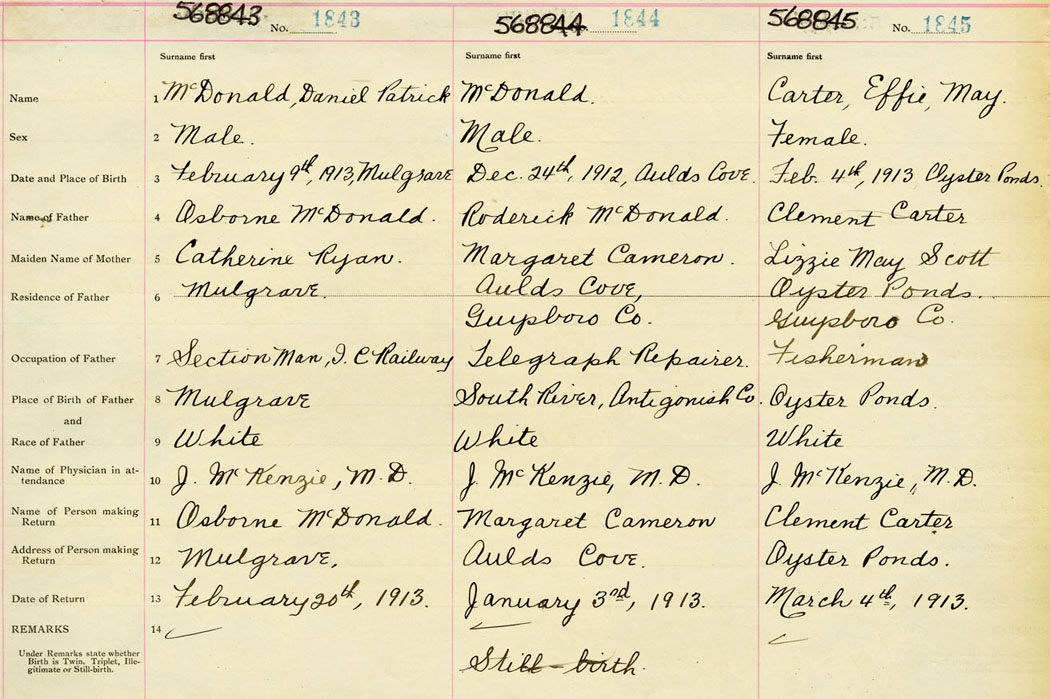 568843 No. 1843 568844 1844 568845 No. 1845
Surname first Surname first Surname first
Name 1 McDonald, Daniel Patrick McDonald. Carter, Effie, May.
Sex 2 Male. Male. Female.
Date and Place of Birth 3 February 9th, 1913, Mulgrave Dec. 24th, 1912, Aulds Cove. Feb. 4th, 1913 Oyster Ponds.
Name of Father 4 Osborne McDonald. Roderick McDonald. Clement Carter
Maiden Name of Mother 5 Catherine Ryan. Margaret Cameron. Lizzie May Scott
Residence of Father 6 Mulgrave. Aulds Cove, Oyster Ponds.
Guysboro Co. Guysboro Co.
Occupation of Father 7 Section Man, I. C Railway Telegraph Repairer. Fisherman
Place of Birth of Father 8 Mulgrave South River, Antigonish Co. Oyster Ponds.
and
Race of Father 9 White White White
Name of Physician in at-
tendance 10 J. McKenzie, M.D. J. McKenzie, M.D. J. McKenzie, M.D.
Name of Person making
Return 11 Osborne McDonald. Margaret Cameron Clement Carter
Address of Person making
Return 12 Mulgrave, Aulds Cove. Oyster Ponds.
Date of Return 13 February 20th, 1913. January 3rd, 1913. March 4th, 1913.
REMARKS 14
Under Remarks state whether
Birth is Twin, Triplet, Ille-
gitimate or Still-birth.
Still-birth.